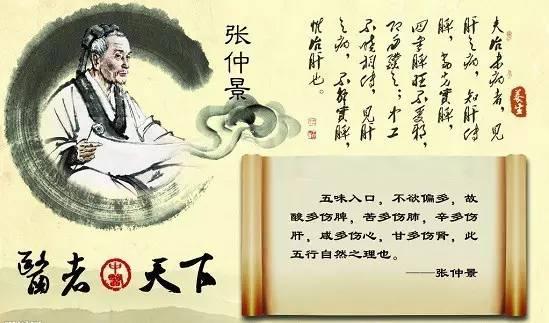 张仲景
夫治未病者，见
肝之病，知肝传
脾，当先实脾，
四季脾旺不受邪，
即勿补之；中工
不晓相传，见肝
之病，不解实脾，
惟治肝也。
养生
五味入口，不欲偏多，故
酸多伤脾，苦多伤肺，辛多伤
肝，咸多伤心，甘多伤肾，此
五行自然之理也。
——张仲景
醫者中醫天下